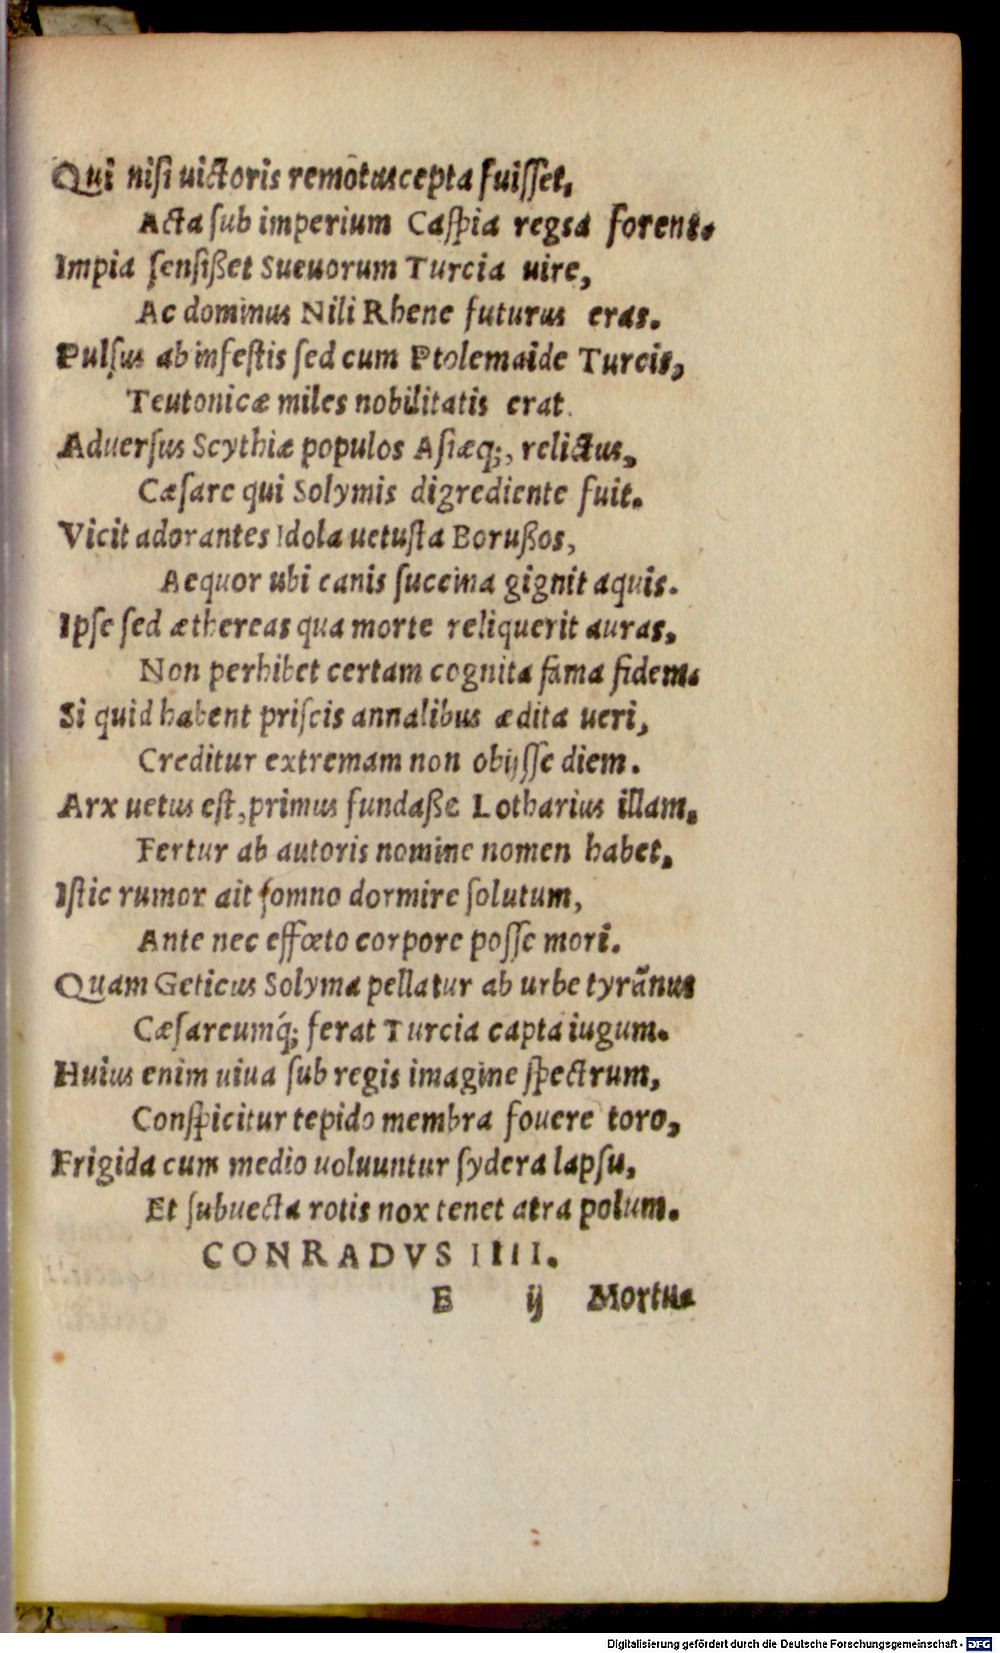 Qui nisi uictoris remōtuscepta fuisset,
Acta sub imperium Caspia regsa forent.
Impia sensißet Sueuorum Turcia uire,
Ac dominus Nili Rhene futurus eras.
Pulsus ab infestis sed cum Ptolemaide Turcis,
Teutonicæ miles nobilitatis erat.
Aduersus Scythiæ populos Asiæq;, relictus,
Cæsare qui Solymis digrediente fuit.
Vicit adorantes Idola uetusta Borußos,
Aequor ubi canis succina gignit aquis.
Ipse sed æthereas qua morte reliquerit auras,
Non perhibet certam cognita fama fidem.
Si quid habent priscis annalibus ædita ueri,
Creditur extremam non obijsse diem.
Arx uetus est, primus fundaße Lotharius illam,
Fertur ab autoris nomine nomen habet,
Istic rumor ait somno dormire solutum,
Ante nec effœto corpore posse mori.
Quam Geticus Solyma pellatur ab urbe tyrãnus
Cæsareumq́; ferat Turcia capta iugum.
Huius enim uiua sub regis imagine spectrum,
Conspicitur tepido membra fouere toro,
Frigida cum medio uoluuntur sydera lapsu,
Et subuecta rotis nox tenet atra polum.
CONRADVS IIII.
E ij Mortua
Digitalisierung gefördert durch die Deutsche Forschungsgemeinschaft - DFG